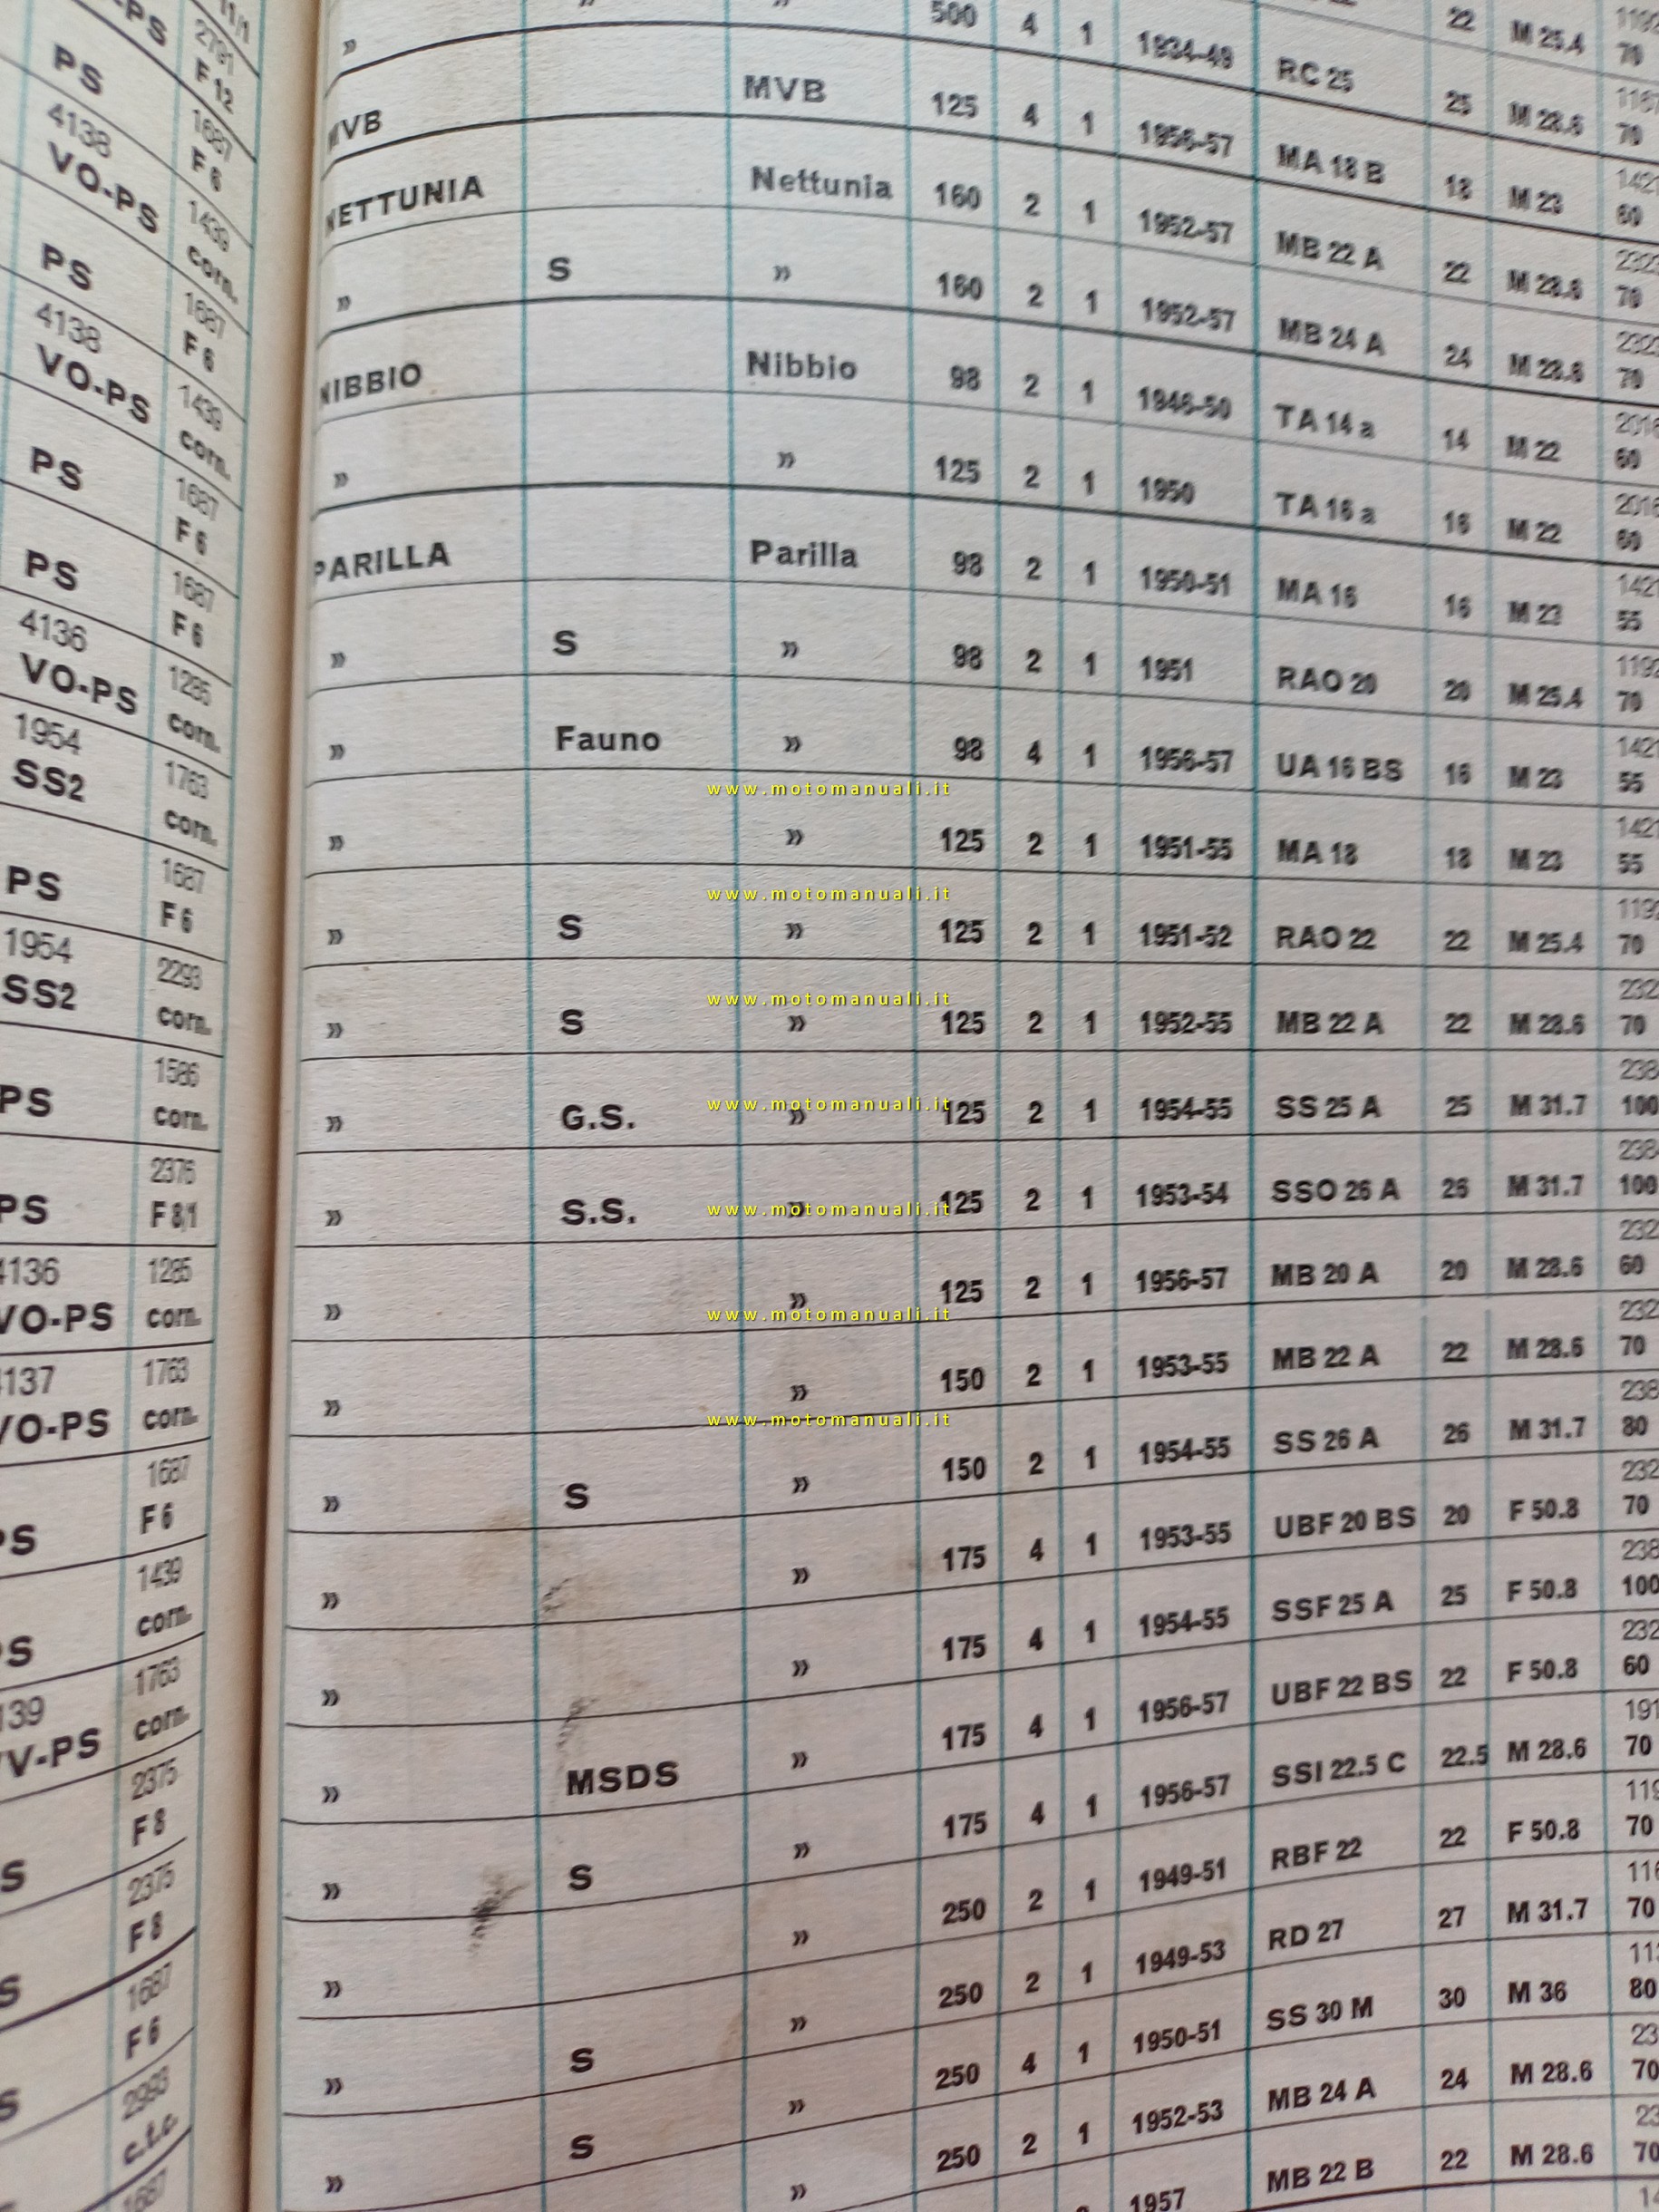 PS 2791
F 12
4138 1687
VO-PS F 6
1439
PS corn.
4138 1687
VO-PS F 6
1439
PS corn.
1687
F 6
PS 1687
F 6
4136 1285
VO-PS corn.
1954 1763
SS2 corn.
PS 1687
F 6
1954 2293
SS2 corn.
PS 1586
corn.
PS 2376
F 8/1
4136 1285
VO-PS corn.
4137 1763
VO-PS corn.
PS 1687
F 6
1439
corn.
1763
V-PS corn.
2375
F 8
2375
F 8
1687
F 6
2983
c.t.c
1687
» » » 500 4 1 1934-49 RC 25 25 M 28.6 70
22 M 25.4 70
MVB MVB 125 4 1 1956-57 MA 18 B 18 M 23 60
NETTUNIA Nettunia 160 2 1 1952-57 MB 22 A 22 M 28.6 70
» S » 160 2 1 1952-57 MB 24 A 24 M 28.6 70
NIBBIO Nibbio 98 2 1 1946-50 TA 14 a 14 M 22 60
» » 125 2 1 1950 TA 16 a 16 M 22 60
PARILLA Parilla 98 2 1 1950-51 MA 16 16 M 23 55
» S » 98 2 1 1951 RAO 20 20 M 25.4 70
» Fauno » 98 4 1 1956-57 UA 16 BS 16 M 23 55
» » 125 2 1 1951-55 MA 18 18 M 23 55
» S » 125 2 1 1951-52 RAO 22 22 M 25.4 70
» S » 125 2 1 1952-55 MB 22 A 22 M 28.6 70
» G.S. » 125 2 1 1954-55 SS 25 A 25 M 31.7 100
» S.S. » 125 2 1 1953-54 SSO 26 A 26 M 31.7 100
» » 125 2 1 1956-57 MB 20 A 20 M 28.6 60
» » 150 2 1 1953-55 MB 22 A 22 M 28.6 70
» S » 150 2 1 1954-55 SS 26 A 26 M 31.7 80
» » 175 4 1 1953-55 UBF 20 BS 20 F 50.8 70
» » 175 4 1 1954-55 SSF 25 A 25 F 50.8 100
» MSDS » 175 4 1 1956-57 UBF 22 BS 22 F 50.8 60
» S » 175 4 1 1956-57 SSI 22.5 C 22.5 M 28.6 70
» » 250 2 1 1949-51 RBF 22 22 F 50.8 70
» S » 250 2 1 1949-53 RD 27 27 M 31.7 70
» S » 250 4 1 1950-51 SS 30 M 30 M 36 80
250 2 1 1952-53 MB 24 A 24 M 28.6 70
1957 MB 22 B 22 M 28.6 70
www.motomanuali.it
www.motomanuali.it
www.motomanuali.it
www.motomanuali.it
www.motomanuali.it
www.motomanuali.it
www.motomanuali.it